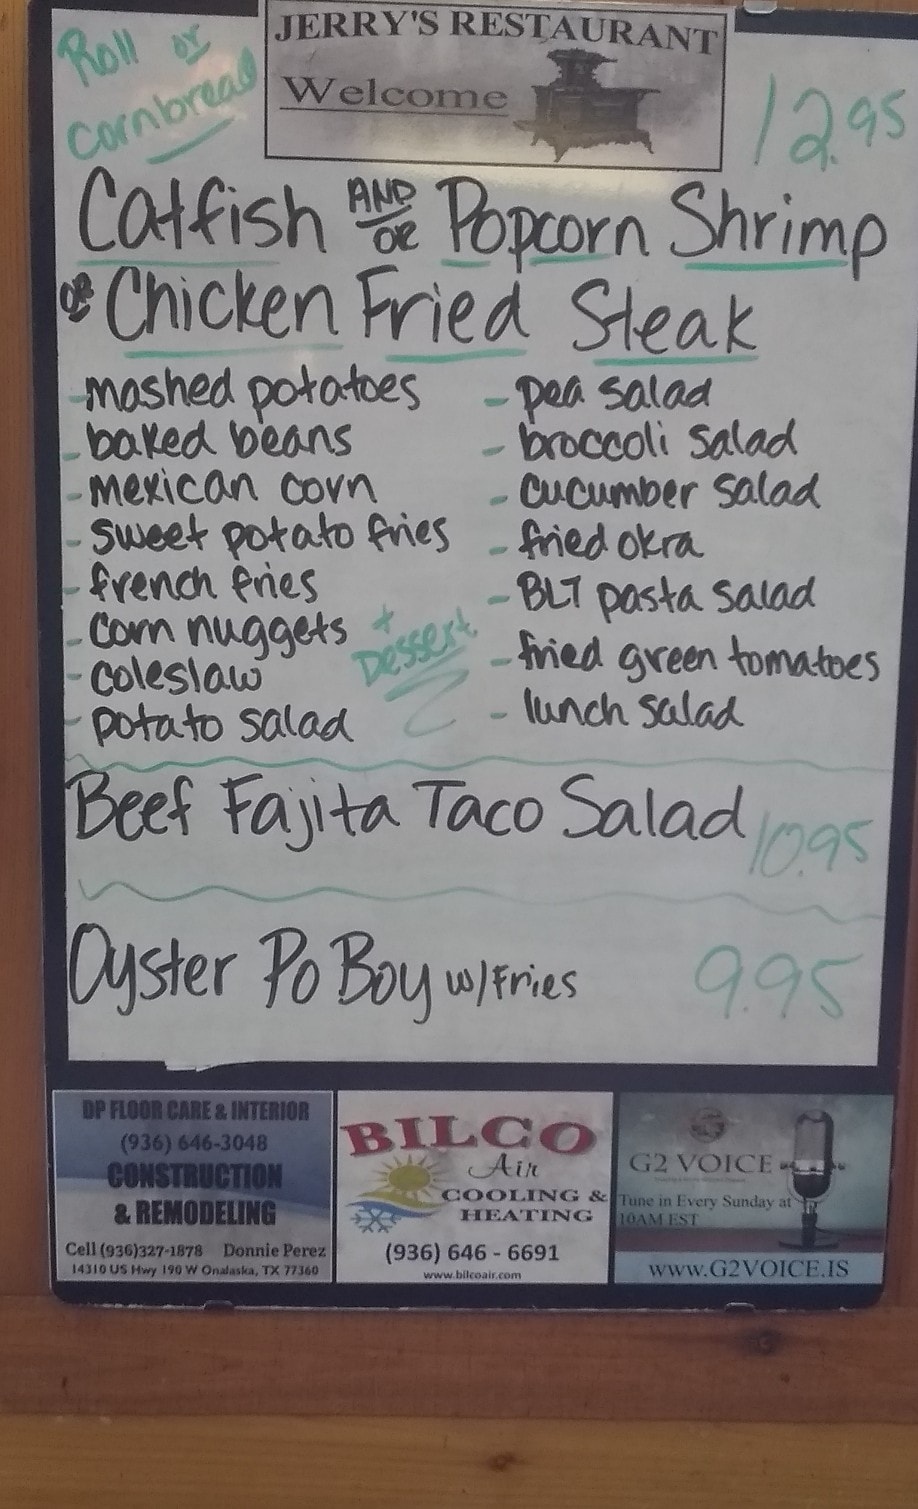 Roll or
Cornbread
JERRY'S RESTAURANT
Welcome
12.95
Catfish AND/OR Popcorn Shrimp
OR Chicken Fried Steak
- mashed potatoes
- baked beans
- mexican corn
- sweet potato fries
- french fries
- corn nuggets
- coleslaw
- potato salad
+
Dessert
- pea salad
- broccoli salad
- cucumber salad
- fried okra
- BLT pasta salad
- fried green tomatoes
- lunch salad
Beef Fajita Taco Salad 10.95
Oyster Po Boy w/Fries 9.95
DP FLOOR CARE & INTERIOR
(936) 646-3048
CONSTRUCTION
& REMODELING
Cell (936)327-1878 Donnie Perez
14310 US Hwy 190 W Onalaska, TX 77360
BILCO
Air
COOLING &
HEATING
(936) 646 - 6691
www.bilcoair.com
G2 VOICE
Tune in Every Sunday at
10AM EST
www.G2VOICE.IS